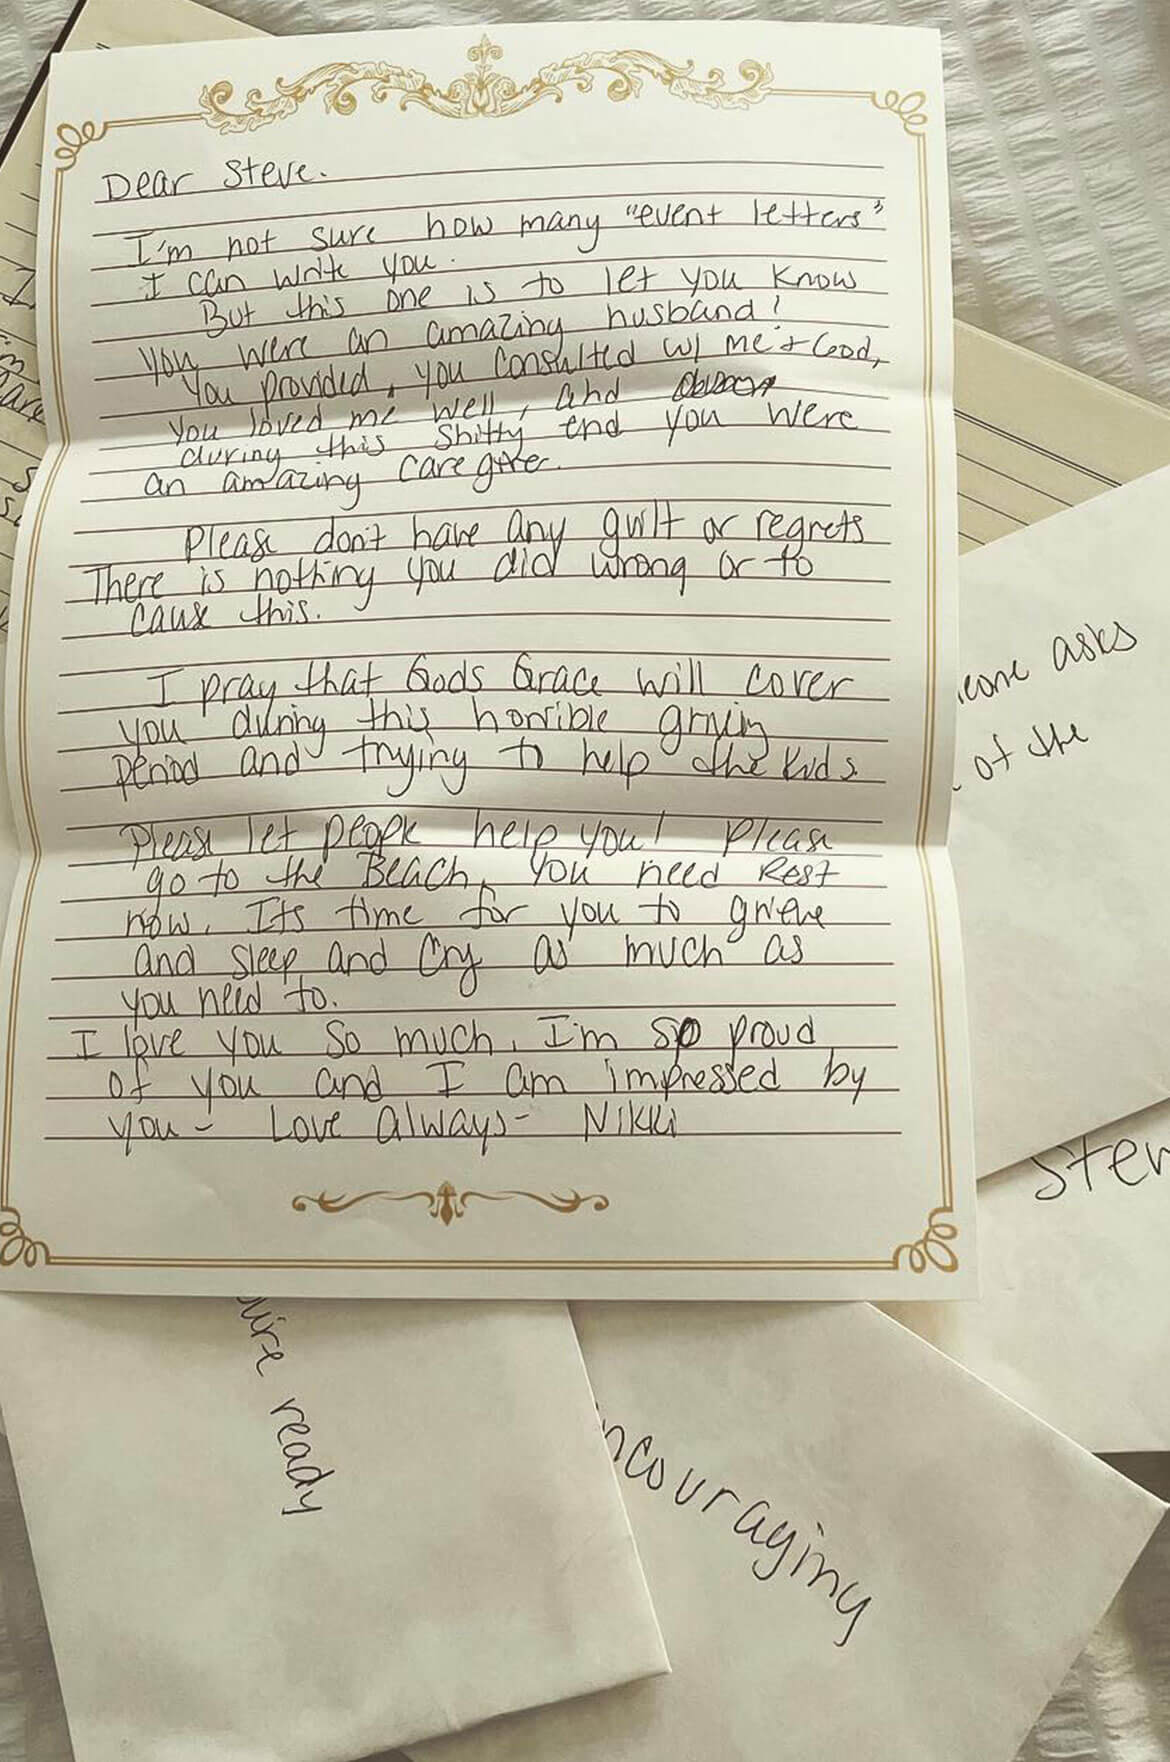 Dear Steve.
I'm not sure how many "event letters"
I can write you.
But this one is to let you know
you were an amazing husband!
You provided, you consulted w/ me + God,
you loved me well, and
during this shitty end you were
an amazing care giver.
Please don't have any guilt or regrets
There is nothing you did wrong or to
cause this.
I pray that Gods Grace will cover
you during this horrible
period and trying to help the kids.
Please let people help you! Please
go to the Beach, you need Rest
now. Its time for you to grieve
and sleep and cry as much as
you need to.
I love you so much, I'm so proud
of you and I am impressed by
you - Love Always - Nikki
eone asks
of the
Stev
ready
ncouraging